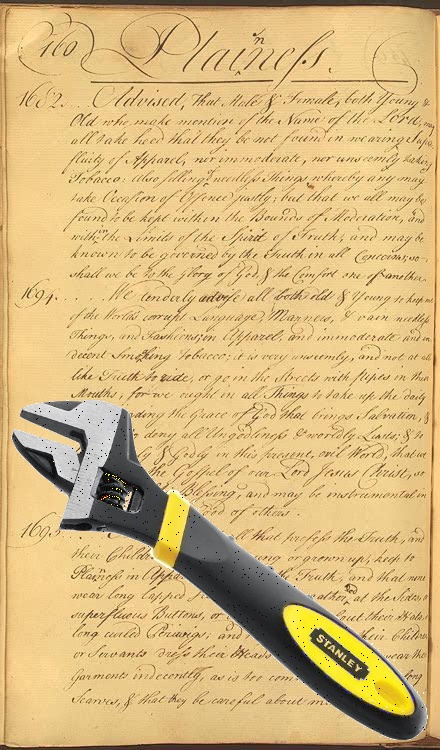 160 Plainness.
1682. . . Advised, that Male & Female, both Young &
Old who make mention of the Name of the Lord, may
all take heed that they be not found in wearing Super
fluity of Apparel, nor immoderate, nor unseemly taking
Tobacco: also selling needless Things whereby any may
take Occasion of Offence justly; but that we all may be
found to be kept within the Bounds of Moderation, and
within the Limits of the Spirit of Truth; and may be
known to be governed by the Truth in all Concerns, so
shall we be to the Glory of God, & the Comfort one of another.
1694. . . . . We tenderly advise all both old & Young to keep
of the World's corrupt Language, Manners, & vain needless
Things, and Fashions in Apparel, and immoderate and in
decent Smoking Tobacco; it is very unseemly, and not at all
like Truth to ride, or go in the Streets with pipes in their
Mouths, for we ought in all Things to take up the daily
the Grace of God that brings Salvation, &
to deny all Ungodliness & worldly Lusts, & to
& Godly in this present, evil World, that
the Gospel of our Lord Jesus Christ, so
Blessing, and may be instrumental in
Good of others.
1695 all that profess the Truth, and
their Children young or grown up, keep to
Plainness in Apparel the Truth, and that none
wear long lapped at the Sides, or
superfluous Buttons, or
long curled Periwigs, and their Children
or Servants dress their Heads wear their
Garments indecently, as is too
Scarves, & that they be careful about
STANLEY